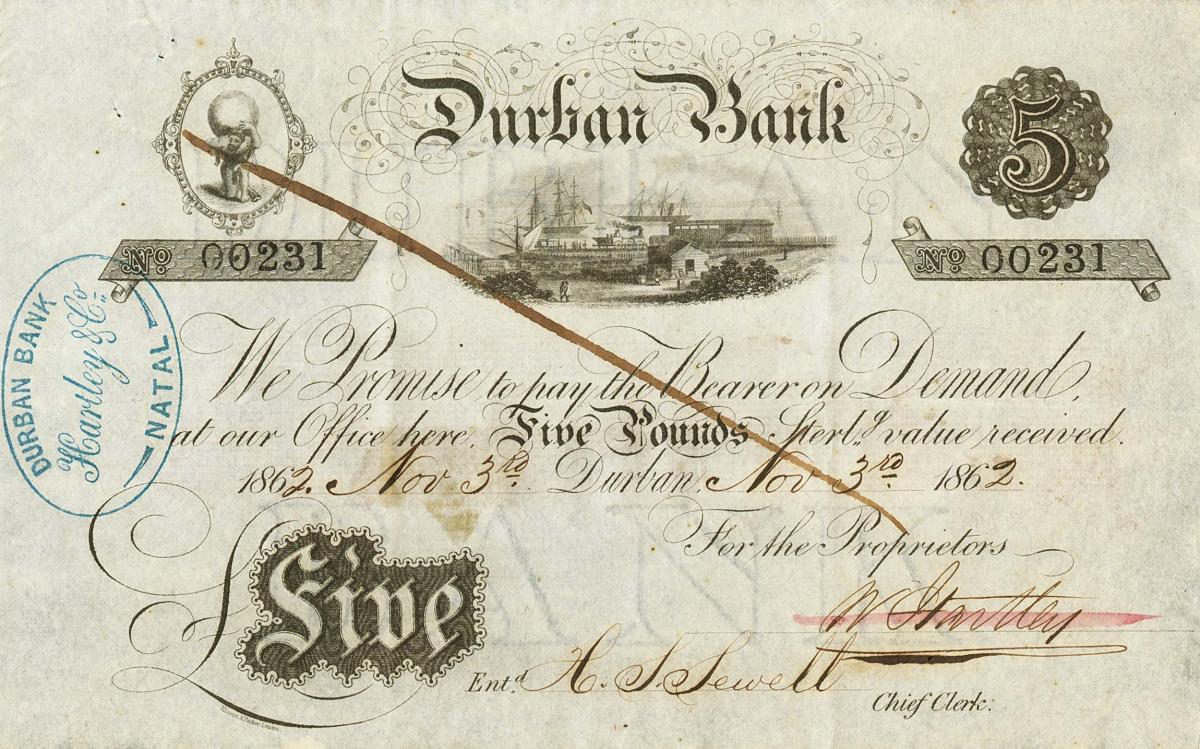 Durban Bank
5
No 00231
No 00231
DURBAN BANK
Hartley & Co
NATAL
We Promise to pay the Bearer on Demand,
at our Office here Five Pounds Sterl.g value received.
1862. Nov 3rd. Durban, Nov 3rd. 1862.
For the Proprietors
W Hartley
Five
Ent.d H. S. Sewell
Chief Clerk: